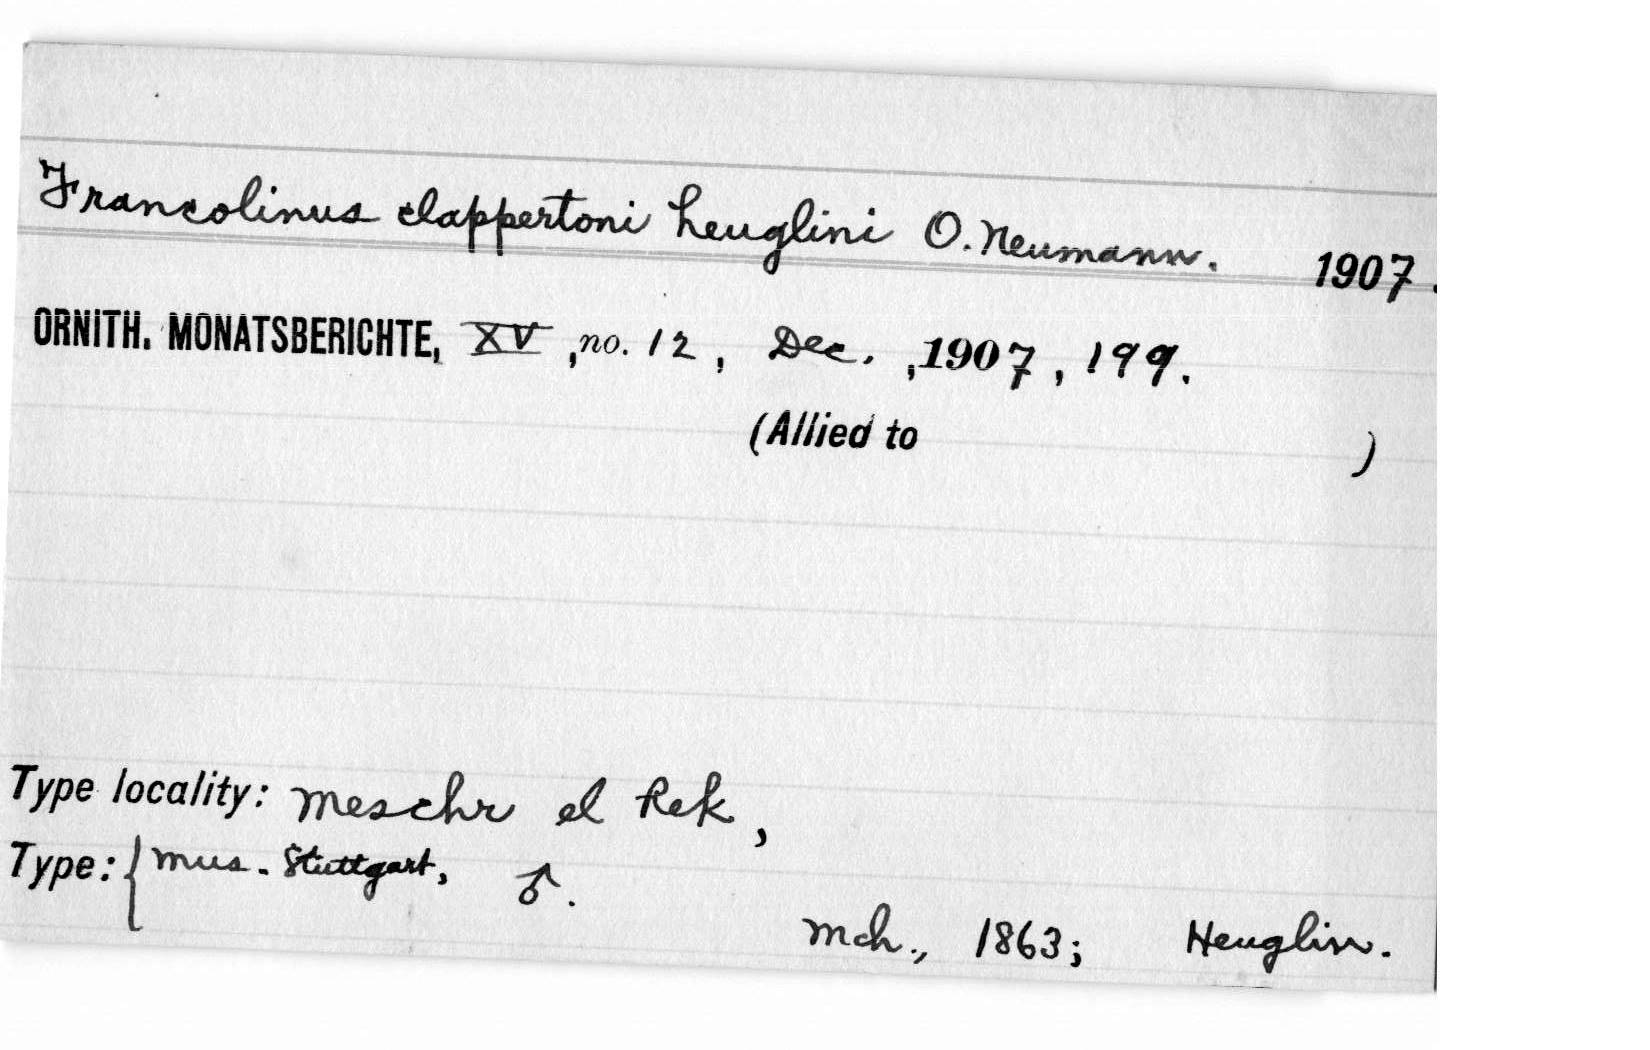 Francolinus clappertoni heuglini O. Neumann. 1907.
ORNITH. MONATSBERICHTE, XV, no. 12, Dec., 1907, 199.
(Allied to )
Type locality: Meschr el Rek,
Type: { Mus. Stuttgart, ♂.
Mch., 1863; Heuglin.